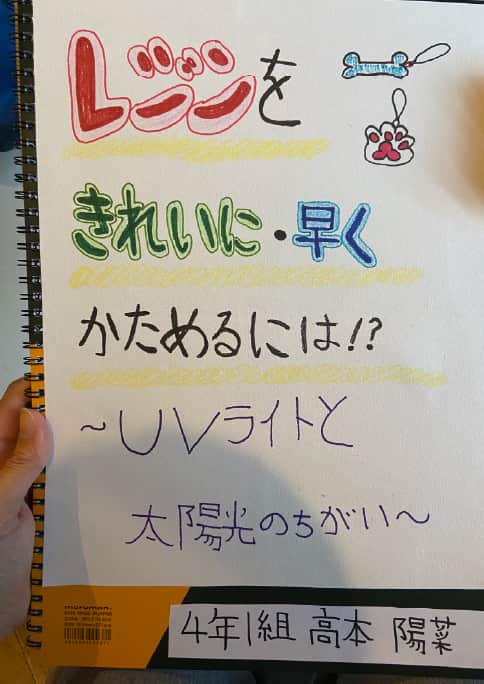 レジンを
きれいに・早く
かためるには!?
~UVライトと
太陽光のちがい~
maruman.
4年1組 高本 陽菜